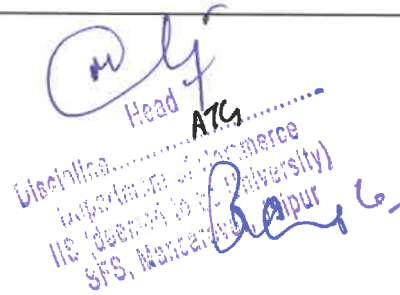 Head
Discipline.......ATG.......
Department of Commerce
IIS (deemed to be University)
SFS, Mansarovar, Jaipur